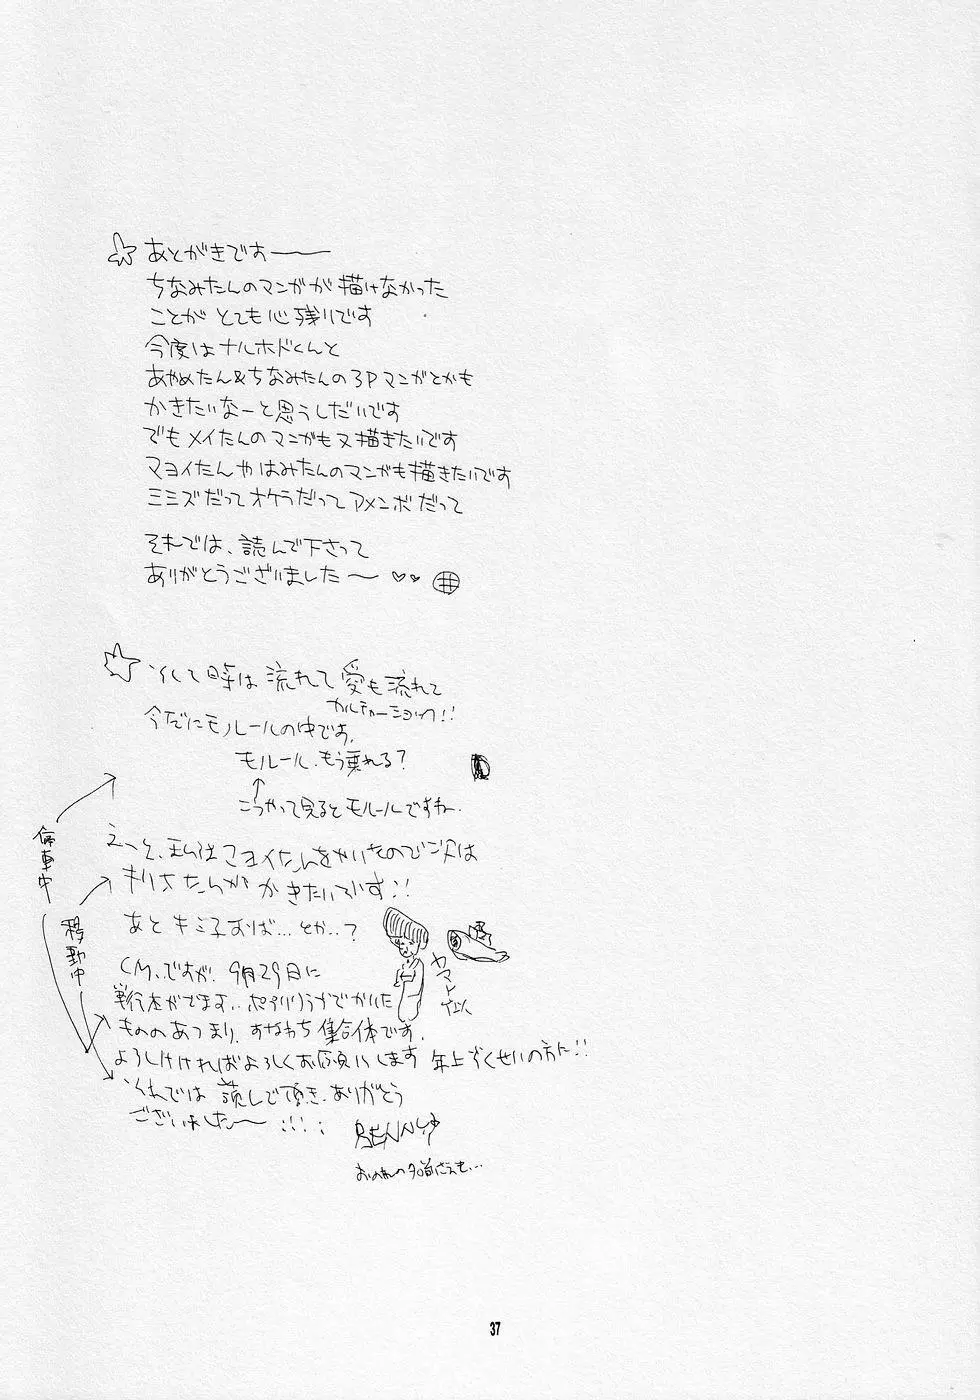 あとがきですーー
ちなみたんのマンガが描けなかった
ことが とても心残りです
今度はナルホドくんと
あやめたん&ちなみたんの3Pマンガとかも
かきたいなーと思うしだいです
でもメイたんのマンガも又描きたいです
マヨイたんやはみたんのマンガも描きたいです
ミミズだってオケラだってアメンボだって
それでは、読んで下さって
ありがとうございました〜 ♡♡ 井
そして時は流れて愛も流れて
カルチャーショック!!
今だにモノレールの中です。
モルール、もう乗れる?
↑
こうやって見るとモルールですね。
停車中
えっと、私はマヨイたんをかいたので次は
移動中
かきたいです!!
あと キミ子おば…とか…?
ヤマト
CM、ですが、9月29日に
単行本がでます。
もののあつまり、すなわち集合体です。
よろしければよろしくお願いします 年上
それでは 読んで頂き、ありがとう
ございました〜 !!!!
BENNY
おのれの名前さえも…
37